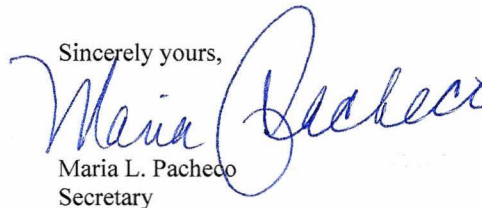 Sincerely yours,
Maria Pacheco
Maria L. Pacheco
Secretary